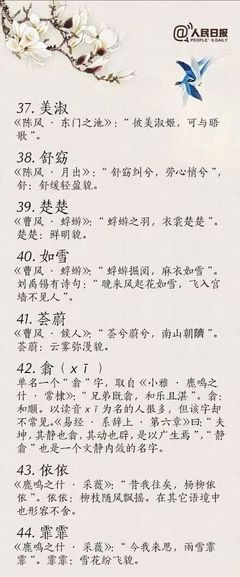 @人民日报
PEOPLE'S DAILY
37. 美淑
《陈风·东门之池》：“彼美淑姬，可与晤
歌”。
38. 舒窈
《陈风·月出》：“舒窈纠兮，劳心悄兮”，
舒：舒缓轻盈貌。
39. 楚楚
《曹风·蜉蝣》：“蜉蝣之羽，衣裳楚楚”。
楚楚：鲜明貌。
40. 如雪
《曹风·蜉蝣》：“蜉蝣掘阅，麻衣如雪”。
刘禹锡有诗句：“晚来风起花如雪，飞入宫
墙不见人”。
41. 荟蔚
《曹风·候人》：“荟兮蔚兮，南山朝隮”。
荟蔚：云雾弥漫貌。
42. 翕（xī）
单名一个“翕”字，取自《小雅·鹿鸣之
什·常棣》：“兄弟既翕，和乐且湛”。翕：
和顺。以读音xī为名的人很多，但该字却
不常见。《易经·系辞上·第六章》曰：“夫
坤，其静也翕，其动也辟，是以广生焉”，“静
翕”也是一个文静内敛的名字。
43. 依依
《鹿鸣之什·采薇》：“昔我往矣，杨柳依
依”。依依：柳枝随风飘摇。在其它语境中
也形容不舍。
44. 霏霏
《鹿鸣之什·采薇》：“今我来思，雨雪霏
霏”。霏霏：雪花纷飞貌。